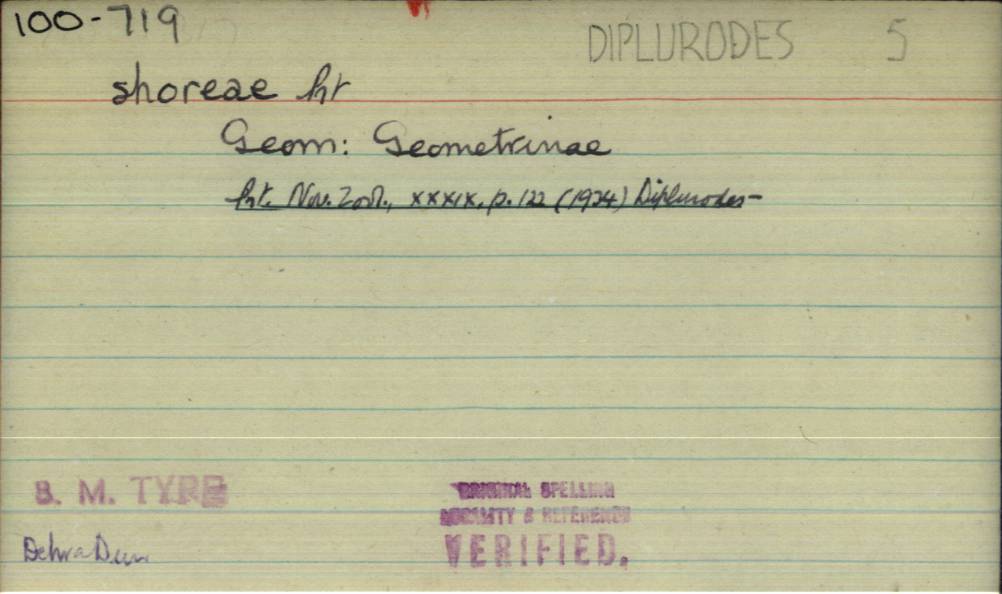 100-719
DIPLURODES 5
shoreae Prt
Geom: Geometrinae
Prt. Nov. Zool., xxxix, p. 122 (1934) Diplurodes-
B. M. TYPE
ORIGINAL SPELLING
LOCALITY & REFERENCE
VERIFIED.
Dehra Dun